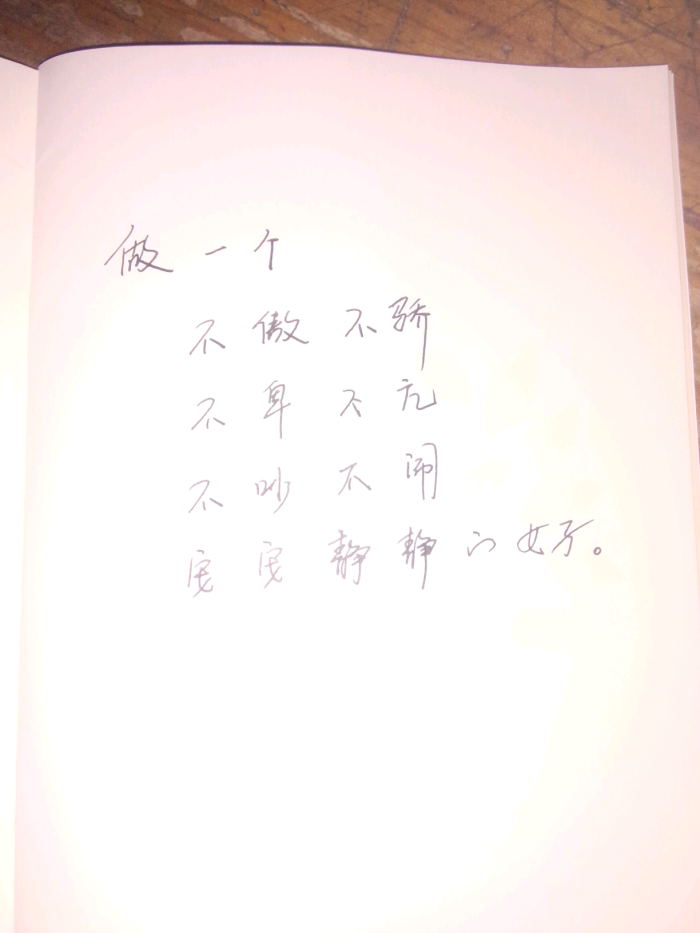 做一个
不傲不骄
不卑不亢
不吵不闹
安安静静的女子。